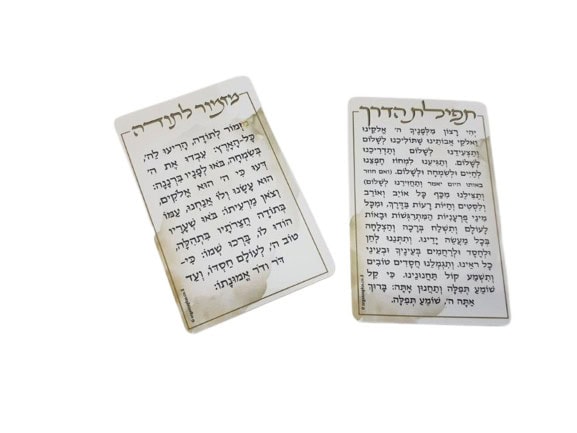 מזמור לתודה
מִזְמוֹר לְתוֹדָה, הָרִיעוּ לַה',
כָּל־הָאָרֶץ: עִבְדוּ אֶת ה'
בְּשִׂמְחָה, בֹּאוּ לְפָנָיו בִּרְנָנָה:
דְּעוּ כִּי ה' הוּא אֱלֹקִים,
הוּא עָשָׂנוּ וְלוֹ אֲנַחְנוּ, עַמּוֹ
וְצֹאן מַרְעִיתוֹ: בֹּאוּ שְׁעָרָיו
בְּתוֹדָה חֲצֵרֹתָיו בִּתְהִלָּה,
הוֹדוּ לוֹ, בָּרְכוּ שְׁמוֹ: כִּי-
טוֹב ה', לְעוֹלָם חַסְדּוֹ, וְעַד
דֹּר וָדֹר אֱמוּנָתוֹ:
תפילת הדרך
יְהִי רָצוֹן מִלְּפָנֶיךָ ה' אֱלֹקֵינוּ
וֵאלֹקֵי אֲבוֹתֵינוּ שֶׁתּוֹלִיכֵנוּ לְשָׁלוֹם
וְתַצְעִידֵנוּ לְשָׁלוֹם וְתַדְרִיכֵנוּ
לְשָׁלוֹם. וְתַגִּיעֵנוּ לִמְחוֹז חֶפְצֵנוּ
לְחַיִּים וּלְשִׂמְחָה וּלְשָׁלוֹם. (ואם חוזר
באותו היום יאמר וְתַחְזִירֵנוּ לְשָׁלוֹם)
וְתַצִּילֵנוּ מִכַּף כָּל אוֹיֵב וְאוֹרֵב
וְלִסְטִים וְחַיּוֹת רָעוֹת בַּדֶּרֶךְ. וּמִכָּל
מִינֵי פֻּרְעָנֻיּוֹת הַמִּתְרַגְּשׁוֹת וּבָאוֹת
לָעוֹלָם וְתִשְׁלַח בְּרָכָה וְהַצְלָחָה
בְּכָל מַעֲשֵׂה יָדֵינוּ. וְתִתְּנֵנוּ לְחֵן
וּלְחֶסֶד וּלְרַחֲמִים בְּעֵינֶיךָ וּבְעֵינֵי
כָל רוֹאֵינוּ. וְתִגְמְלֵנוּ חֲסָדִים טוֹבִים
וְתִשְׁמַע קוֹל תַּחֲנוּנֵינוּ. כִּי קֵל
שׁוֹמֵעַ תְּפִלָּה וְתַחֲנוּן אָתָּה: בָּרוּךְ
אַתָּה ה', שׁוֹמֵעַ תְּפִלָּה.